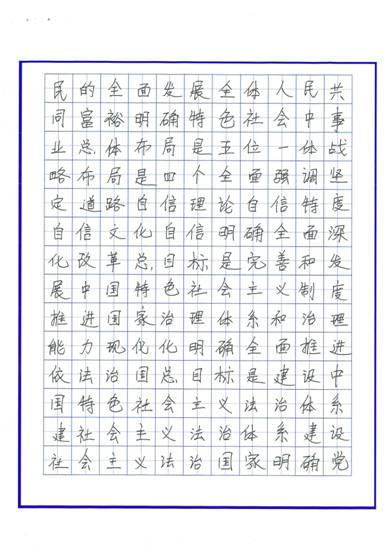 民的全面发展全体人民共
同富裕明确特色社会中事
业总体布局是五位一体战
略布局是四个全面强调坚
定道路自信理论自信特度
自信文化自信明确全面深
化改革总目标是完善和发
展中国特色社会主义制度
推进国家治理体系和治理
能力现代化明确全面推进
依法治国总目标是建设中
国特色社会主义法治体系
建社会主义法治体系建设
社会主义法治国家明确党